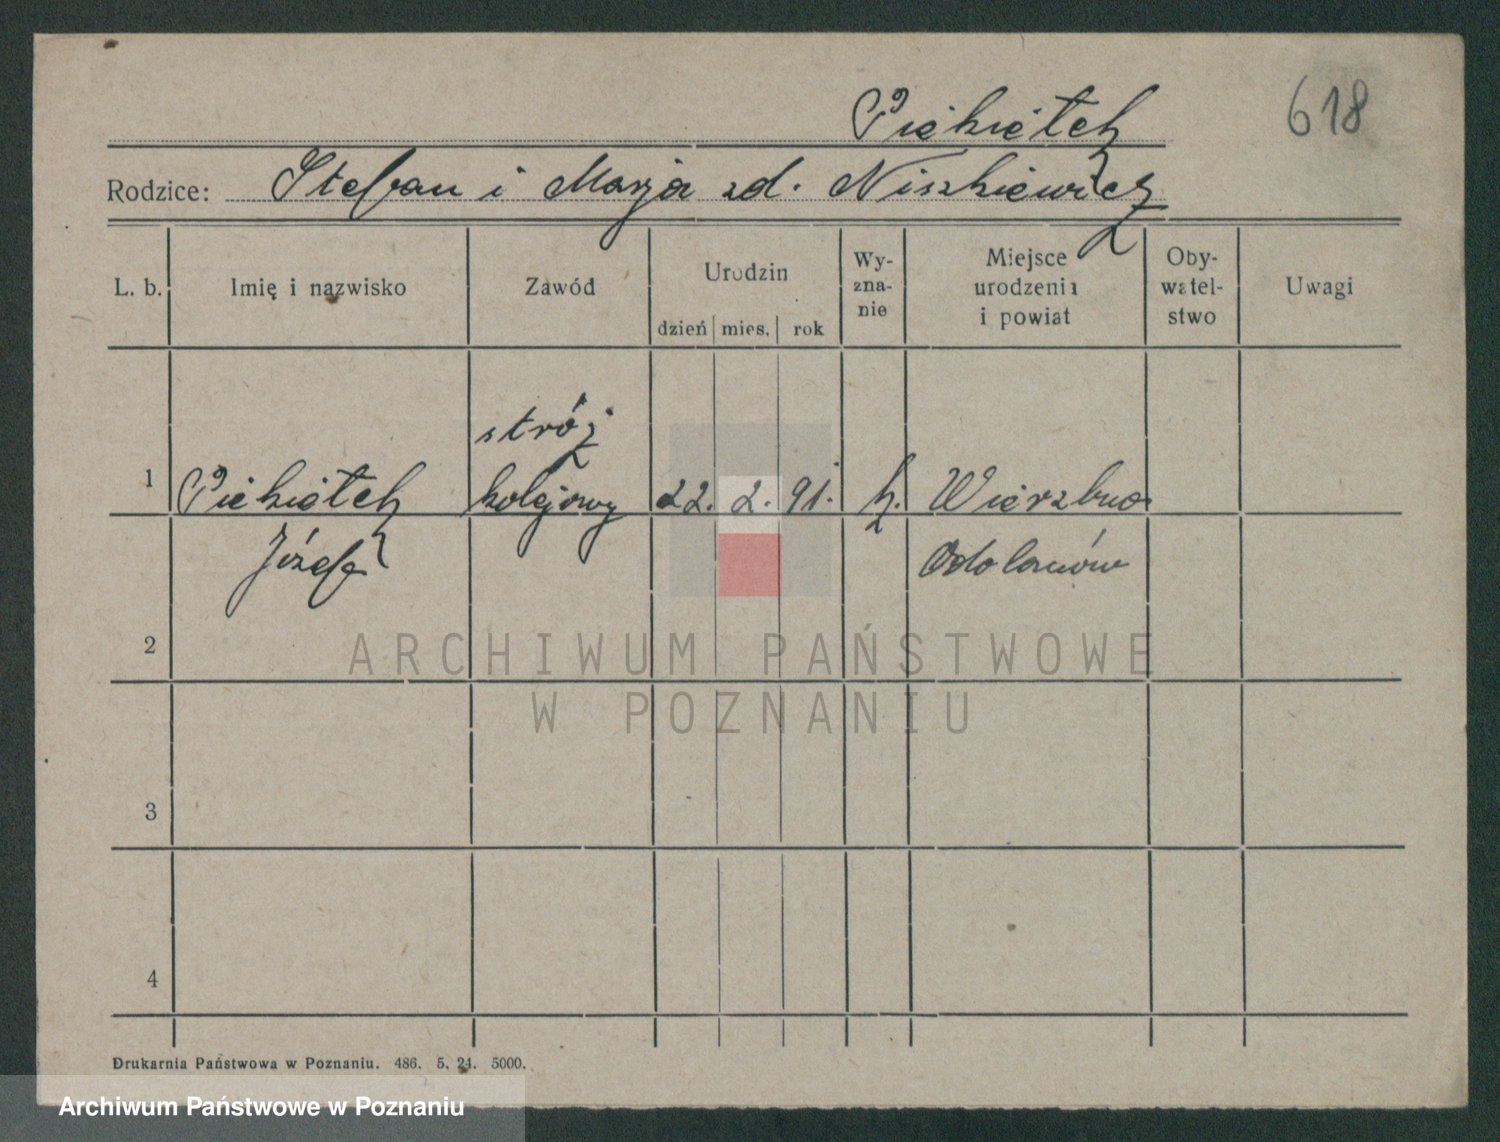 Piękiętek
618
Rodzice: Stefan i Marja zd. Niszkiewicz
L. b. Imię i nazwisko Zawód Urodzin dzień mies. rok Wy-zna-nie Miejsce urodzenia i powiat Oby-watel-stwo Uwagi
stróż
1 kolejowy 22. 2. 91. k. Wierzbno
Józef Odolanów
2
ARCHIWUM PAŃSTWOWE
W POZNANIU
3
4
Drukarnia Państwowa w Poznaniu. 486. 5. 24. 5000.
Archiwum Państwowe w Poznaniu